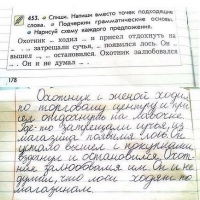 453. Спиши. Напиши вместо точек подходящие
слова. Подчеркни грамматические основы.
Нарисуй схему каждого предложения.
Охотник ... ходил ... и присел отдохнуть на
... . ... затрещали сучья, ... появился лось. Он ...
вышел ... и остановился. Охотник залюбовался
... . Он и не думал ... .
178
Охотник с женой ходил
по торговому центру и при
сел отдохнуть на лавочке.
Где-то затрещали сучья, из
магазина появился лось. Он
устало вышел с покупками
вздохнул и остановился. Охот
ник залюбовался им. Он и не
думал, что лоси ходят по
магазинам.